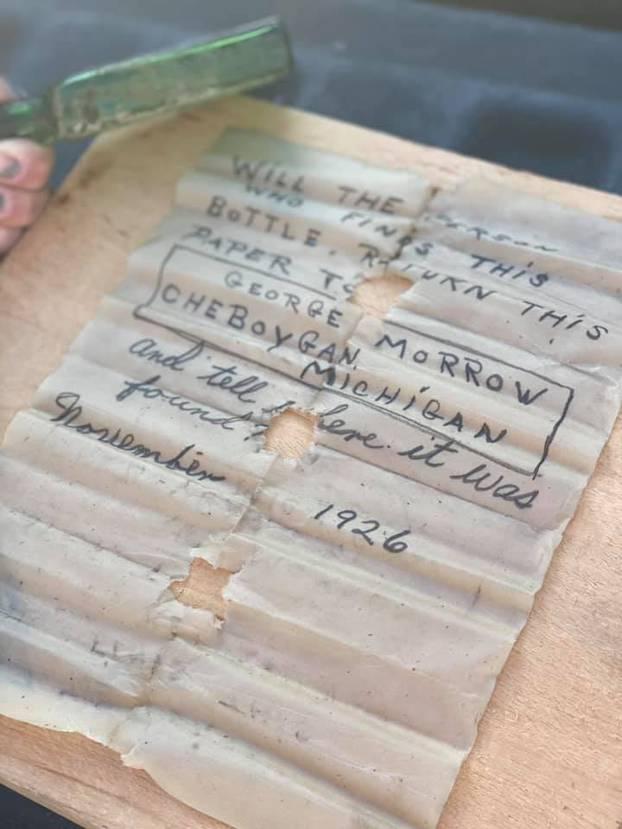 WILL THE PERSON
WHO FINDS THIS
BOTTLE. RETURN THIS
PAPER TO
GEORGE MORROW
CHEBOYGAN
MICHIGAN
and tell where it was
found?
November 1926